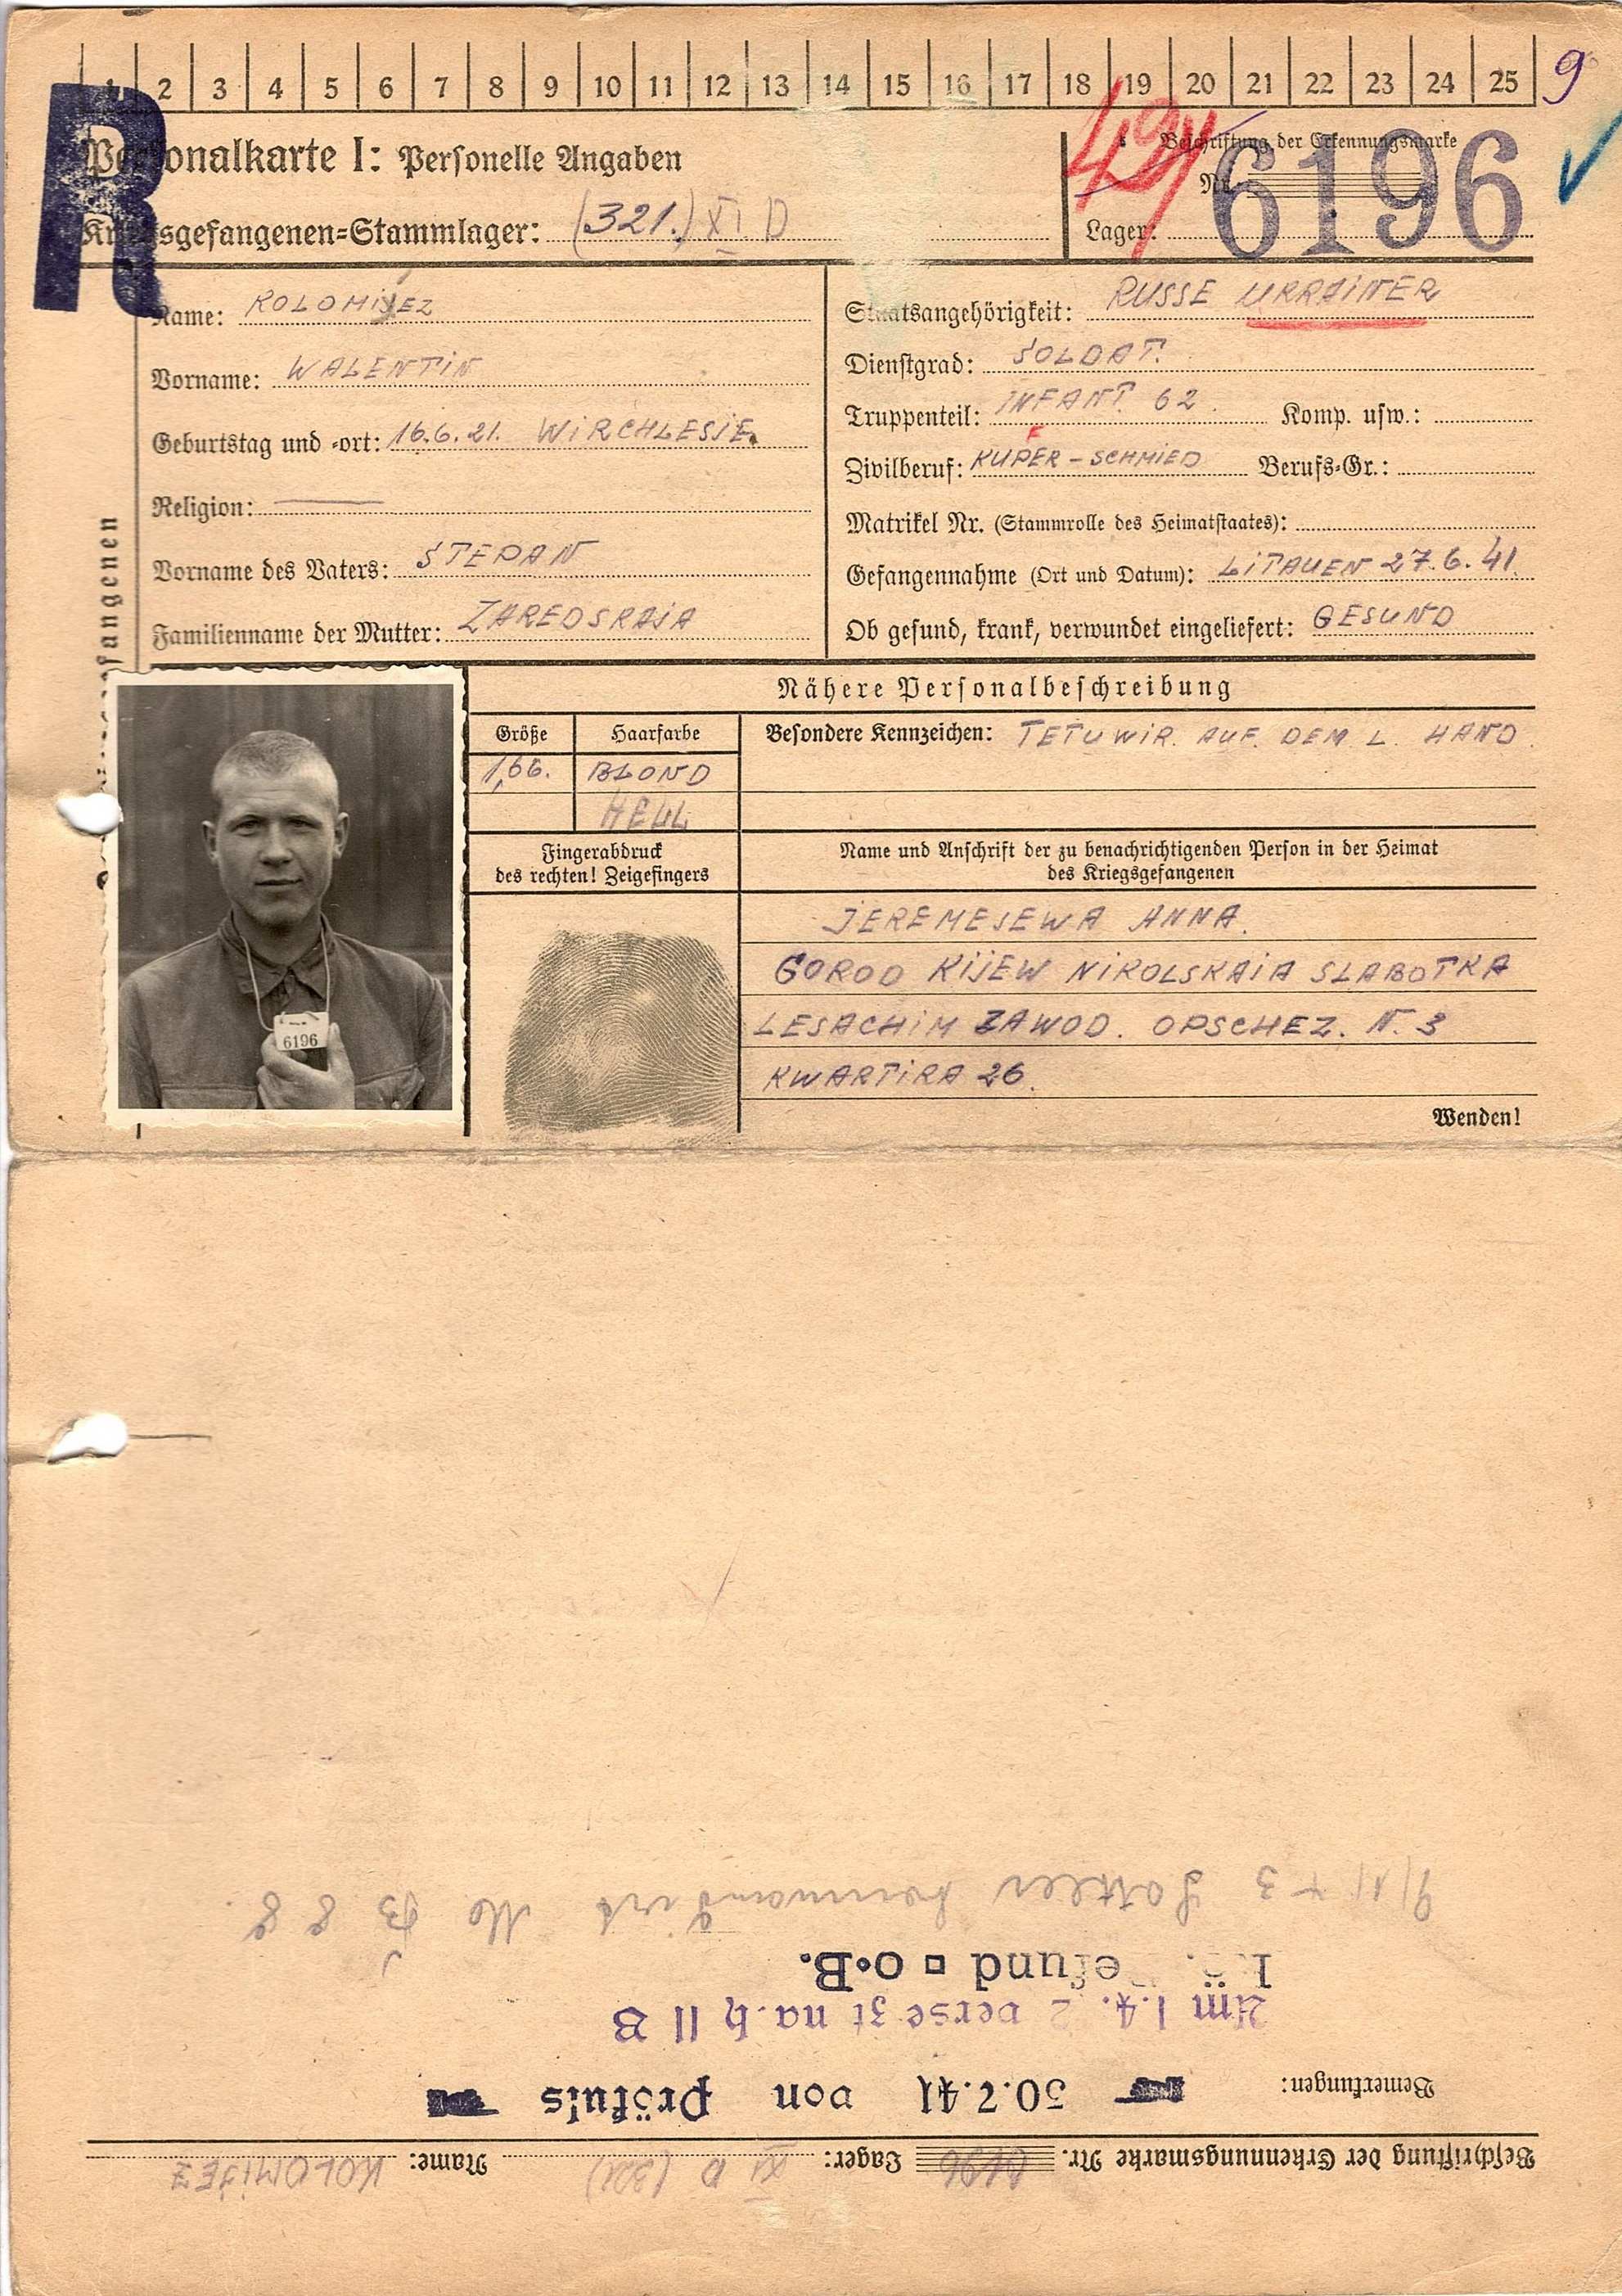 1 2 3 4 5 6 7 8 9 10 11 12 13 14 15 16 17 18 19 20 21 22 23 24 25 9
R
Personalkarte I: Personelle Angaben
Kriegsgefangenen=Stammlager: (321.) XI D
Beschriftung der Erkennungsmarke
Nr. 6196
Lager:
Name: KOLOMIJEZ
Vorname: WALENTIN
Geburtstag und =ort: 16.6.21. WIRCHLESJE
Religion:
Vorname des Vaters: STEPAN
Familienname der Mutter: ZAREDSKAJA
Staatsangehörigkeit: RUSSE UKRAINER
Dienstgrad: SOLDAT.
Truppenteil: INFANT. 62. Komp. usw.:
Zivilberuf: KUPFER-SCHMIED Berufs=Gr.:
Matrikel Nr. (Stammrolle des Heimatstaates):
Gefangennahme (Ort und Datum): LITAUEN 27.6.41.
Ob gesund, krank, verwundet eingeliefert: GESUND
fangenen
6196
Nähere Personalbeschreibung
Größe
Haarfarbe
Besondere Kennzeichen: TETUWIR. AUF. DEM L. HAND.
1,66.
BLOND
HELL
Fingerabdruck
des rechten! Zeigefingers
Name und Anschrift der zu benachrichtigenden Person in der Heimat
des Kriegsgefangenen
JEREMEJEWA ANNA.
GOROD KIJEW NIKOLSKAIA SLABOTKA
LESACHIM ZAWOD. OPSCHEZ. N. 3
KWARTIRA 26.
Wenden!
Beschriftung der Erkennungsmarke Nr. 6196 Lager: XI D (321) Name: KOLOMIJEZ
Bemerkungen: 30.7.41 von Prökuls
Am 1.4. 2 versetzt nach II B
Befund o.B.